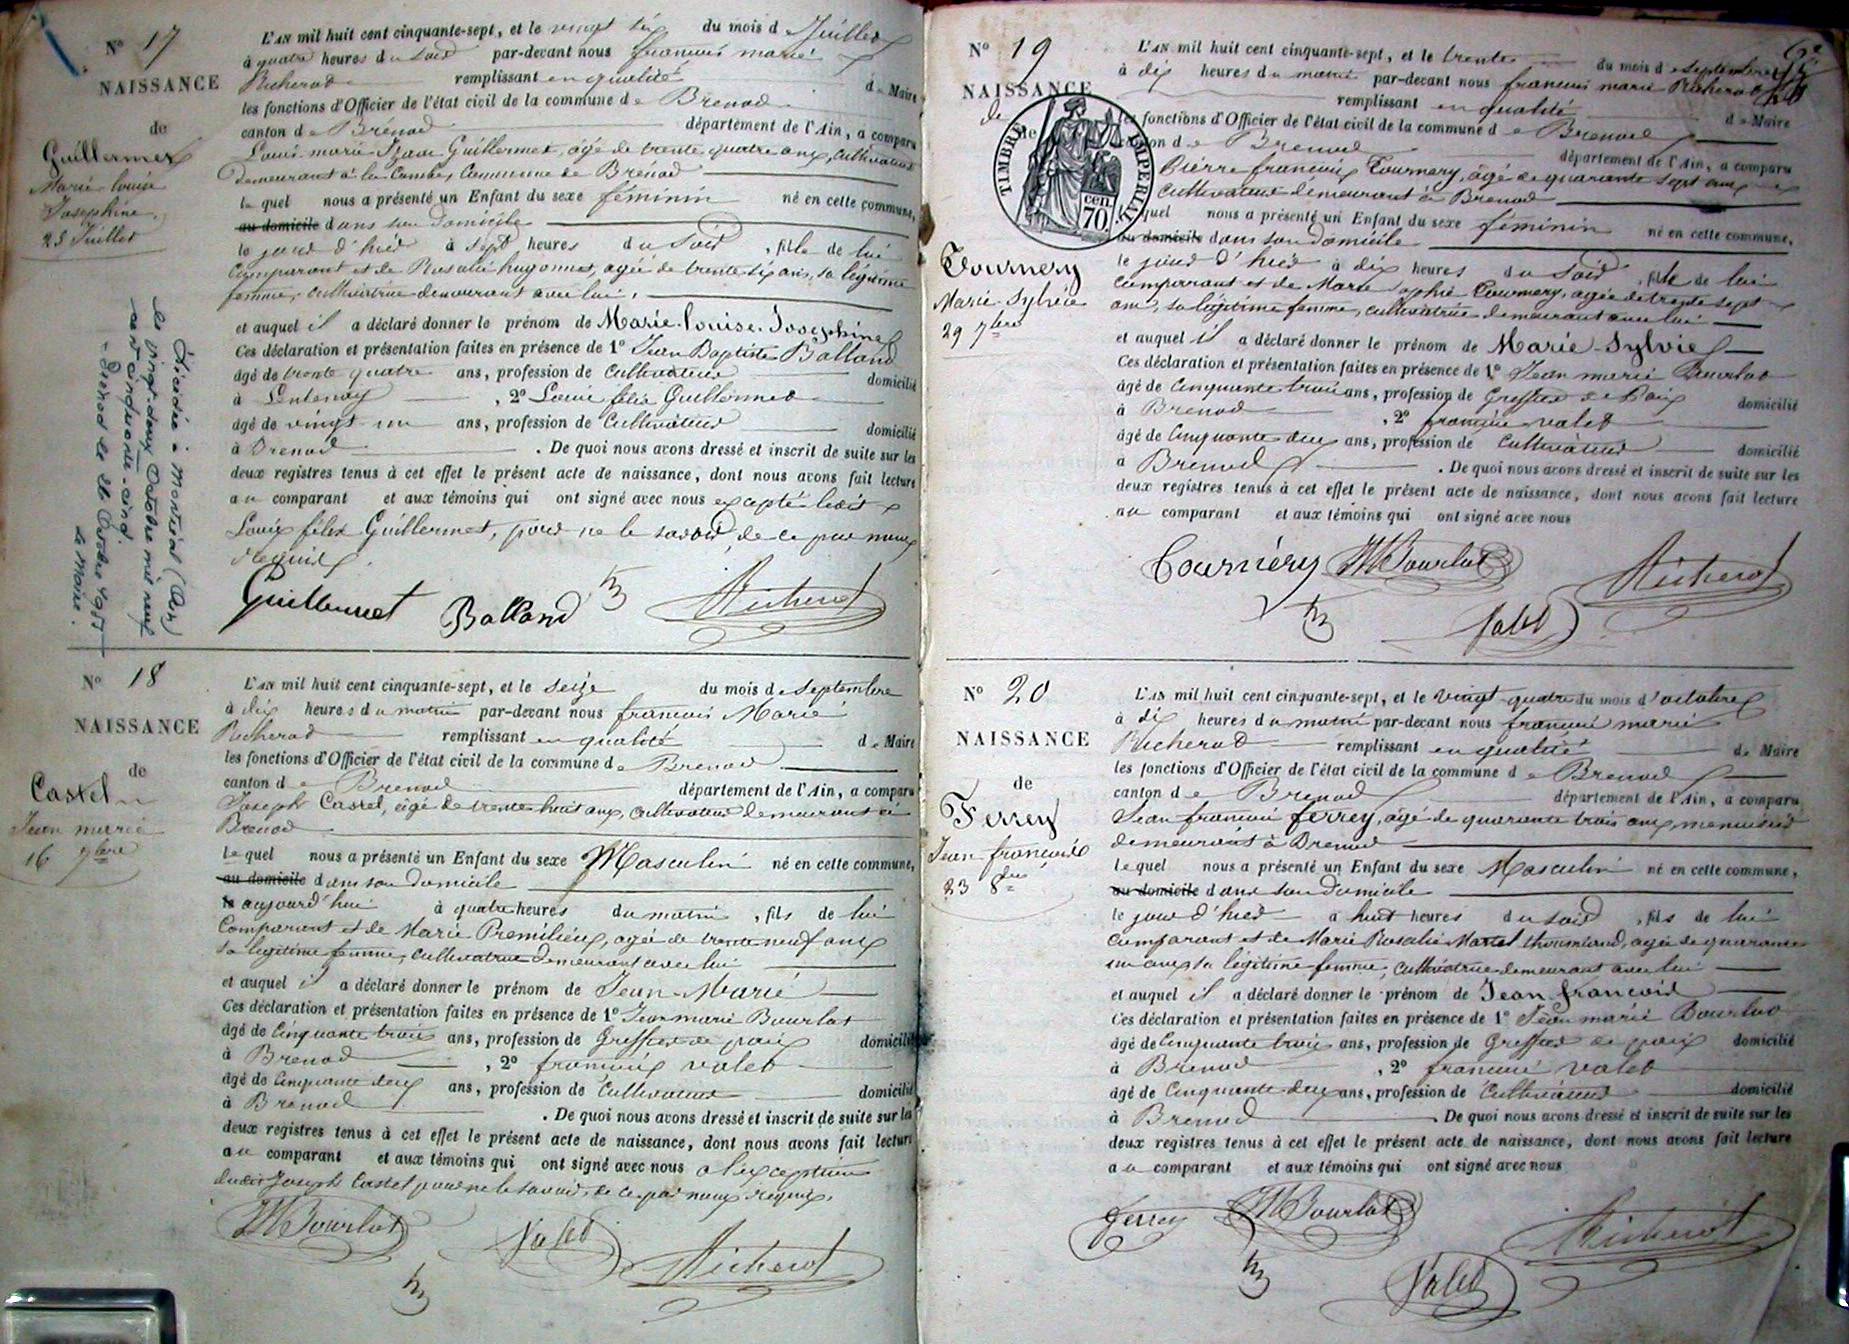 N° 17
NAISSANCE
de
Guillermet
Marie louise
Josephine
25 Juillet
Décédée à Montréal (Ain)
le vingt deux Octobre mil neuf
cent cinquante-cinq.
Brénod le 26 Octobre 1955
Le Maire.
L'AN mil huit cent cinquante-sept, et le vingt six du mois de Juillet
à quatre heures du soir par-devant nous françois marie
Richerot remplissant en qualité de Maire
les fonctions d'Officier de l'état civil de la commune de Brenod
canton de Brénod département de l'Ain, a comparu
Louis marie Guillermet, âgé de trente quatre ans, cultivateur
demeurant à la Combe, Commune de Brénod
le quel nous a présenté un Enfant du sexe féminin né en cette commune,
au domicile dans son domicile
le jour d'hier à sept heures du soir, fille de lui
Comparant et de Rosalie hugonnet, agée de trente six ans, sa légitime
femme, cultivatrice demeurant avec lui.
et auquel il a déclaré donner le prénom de Marie-louise-Josephine
Ces déclaration et présentation faites en présence de 1° Jean Baptiste Balland
âgé de trente quatre ans, profession de Cultivateur domicilié
à Lentenay, 2° Louis félix Guillermet
âgé de vingt un ans, profession de Cultivateur domicilié
à Brenod. De quoi nous avons dressé et inscrit de suite sur les
deux registres tenus à cet effet le présent acte de naissance, dont nous avons fait lecture
au comparant et aux témoins qui ont signé avec nous excepté ledit
Louis félix Guillermet, pour ne le savoir, de ce par nous
requis.
Guillermet Balland Richerot
N° 18
NAISSANCE
de
Castel
Jean marie
16 7bre
L'AN mil huit cent cinquante-sept, et le seize du mois de septembre
à dix heures du matin par-devant nous francois Marie
Richerot remplissant en qualité de Maire
les fonctions d'Officier de l'état civil de la commune de Brenod
canton de Brenod département de l'Ain, a comparu
Joseph Castel, âgé de trente huit ans, cultivateur demeurant à
Brenod
le quel nous a présenté un Enfant du sexe Masculin né en cette commune,
au domicile dans son domicile
le aujourd'hui à quatre heures du matin, fils de lui
Comparant et de Marie Premilieu, agée de trente neuf ans
sa légitime femme, cultivatrice demeurant avec lui
et auquel il a déclaré donner le prénom de Jean-Marie
Ces déclaration et présentation faites en présence de 1° Jean marie Bourlot
âgé de Cinquante trois ans, profession de Greffier de paix domicilié
à Brenod, 2° françois valet
âgé de Cinquante deux ans, profession de Cultivateur domicilié
à Brenod. De quoi nous avons dressé et inscrit de suite sur les
deux registres tenus à cet effet le présent acte de naissance, dont nous avons fait lecture
au comparant et aux témoins qui ont signé avec nous a l'exception
dudit Joseph Castel pour ne le savoir, de ce par nous requis.
Bourlot Valet Richerot
N° 19
NAISSANCE
de
TIMBRE IMPERIAL
70 cen.
Tournery
Marie-Sylvie
29 7bre
L'AN mil huit cent cinquante-sept, et le trente du mois de septembre
à dix heures du matin par-devant nous francois marie Richerot
remplissant en qualité de Maire
les fonctions d'Officier de l'état civil de la commune de Brenod
canton de Brenod département de l'Ain, a comparu
Pierre francois Tournery, âgé de quarante sept ans
Cultivateur demeurant à Brenod
le quel nous a présenté un Enfant du sexe féminin né en cette commune,
au domicile dans son domicile
le jour d'hier à dix heures du soir, fille de lui
Comparant et de Marie sophie Tournery, agée de trente sept
ans, sa légitime femme, cultivatrice demeurant avec lui
et auquel il a déclaré donner le prénom de Marie-Sylvie
Ces déclaration et présentation faites en présence de 1° Jean marie Bourlot
âgé de Cinquante trois ans, profession de Greffier de Paix domicilié
à Brenod, 2° françois valet
âgé de Cinquante deux ans, profession de Cultivateur domicilié
à Brenod. De quoi nous avons dressé et inscrit de suite sur les
deux registres tenus à cet effet le présent acte de naissance, dont nous avons fait lecture
au comparant et aux témoins qui ont signé avec nous
Tournéry Bourlot Richerot
Valet
N° 20
NAISSANCE
de
Ferrey
Jean francois
23 8bre
L'AN mil huit cent cinquante-sept, et le vingt quatre du mois d'octobre
à dix heures du matin par-devant nous francois marie
Richerot remplissant en qualité de Maire
les fonctions d'Officier de l'état civil de la commune de Brenod
canton de Brenod département de l'Ain, a comparu
Jean francois ferrey, âgé de quarante trois ans, menuisier
demeurant à Brenod
le quel nous a présenté un Enfant du sexe Masculin né en cette commune,
au domicile dans son domicile
le jour d'hier à huit heures du soir, fils de lui
Comparant et de Marie Rosalie Martel, agée de quarante
un ans, sa légitime femme, cultivatrice demeurant avec lui
et auquel il a déclaré donner le prénom de Jean-francois
Ces déclaration et présentation faites en présence de 1° Jean marie Bourlot
âgé de Cinquante trois ans, profession de Greffier de paix domicilié
à Brenod, 2° francois valet
âgé de Cinquante deux ans, profession de Cultivateur domicilié
à Brenod. De quoi nous avons dressé et inscrit de suite sur les
deux registres tenus à cet effet le présent acte de naissance, dont nous avons fait lecture
au comparant et aux témoins qui ont signé avec nous
ferrey Bourlot Richerot
Valet